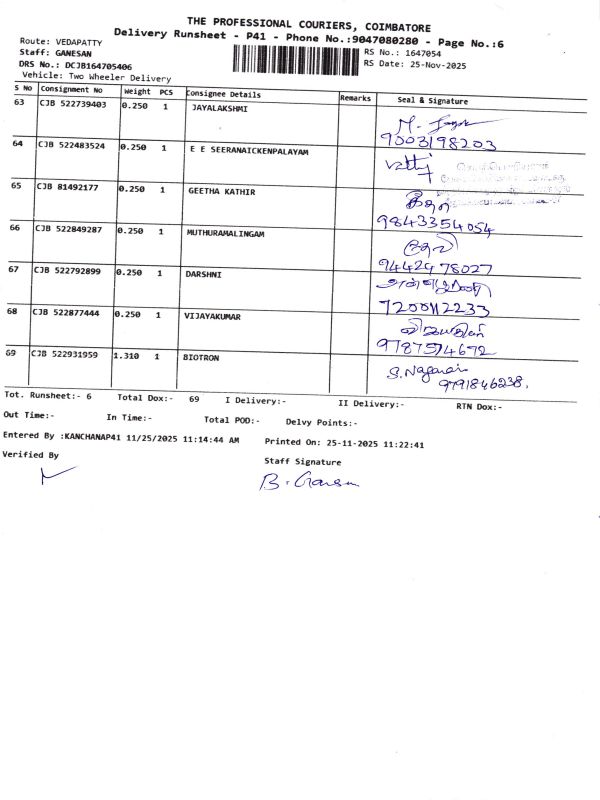 THE PROFESSIONAL COURIERS, COIMBATORE
Delivery Runsheet - P41 - Phone No.:9047080280 - Page No.:6
Route: VEDAPATTY
Staff: GANESAN
RS No.: 1647054
DRS No.: DCJB164705406
RS Date: 25-Nov-2025
Vehicle: Two Wheeler Delivery
S No Consignment No Weight PCS Consignee Details Remarks Seal & Signature
63 CJB 522739403 0.250 1 JAYALAKSHMI
9003198203
64 CJB 522483524 0.250 1 E E SEERANAICKENPALAYAM
65 CJB 81492177 0.250 1 GEETHA KATHIR கீதா
9843354054
66 CJB 522849287 0.250 1 MUTHURAMALINGAM தேவி
9442478027
67 CJB 522792899 0.250 1 DARSHNI
7200112233
68 CJB 522877444 0.250 1 VIJAYAKUMAR
69 CJB 522931959 1.310 1 BIOTRON S. Nagarai
9791846238.
Tot. Runsheet:- 6 Total Dox:- 69 I Delivery:- II Delivery:- RTN Dox:-
Out Time:- In Time:- Total POD:- Delvy Points:-
Entered By :KANCHANAP41 11/25/2025 11:14:44 AM Printed On: 25-11-2025 11:22:41
Verified By Staff Signature